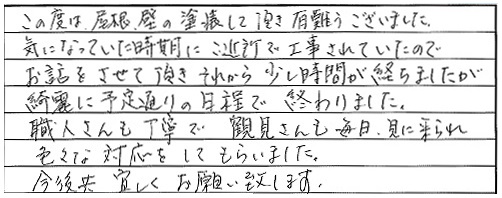 この度は、屋根、壁の塗装して頂き有難うございました。
気になっていた時期にご近所で工事されていたので
お話をさせて頂きそれから少し時間が経ちましたが
綺麗に予定通りの日程で終わりました。
職人さんも丁寧で 観見さんも毎日、見に来られ
色々な対応をしてもらいました。
今後共宜しくお願い致します。